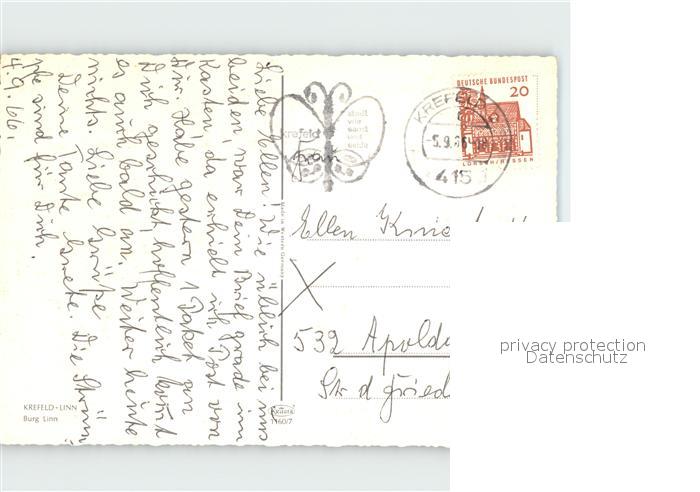 Liebe Ellen! Wie üblich bei uns
beiden, war Dein Brief grade im
Kasten, da erhielt ich Post von
Dir. Habe gestern 1 Paket an
Dich geschickt, hoffentlich kommt
es auch bald an. Weiter heute
nichts. Liebe Grüße
Deine Tante Grete. Die
sind für Dich.
4.9.66
KREFELD-LINN
Burg Linn
krefeld
stadt
wie
samt
und
seide
KREFELD
-5.9.66
415
DEUTSCHE BUNDESPOST
20
LORSCH/HESSEN
Made in Western Germany
Krüger
1160/7
Frau
Ellen
532 Apolda
Str d Fried
privacy protection
Datenschutz